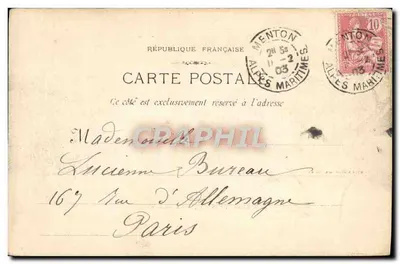 RÉPUBLIQUE FRANÇAISE
CARTE POSTAL
Ce côté est exclusivement réservé à l'adresse
MENTON
11 -2
03
ALPES MARITIMES
MENTON
2
03
ALPES MARITIMES
10
CPAPHIL
Mademoiselle
Lucienne Bureau
167 Rue d'Allemagne
Paris